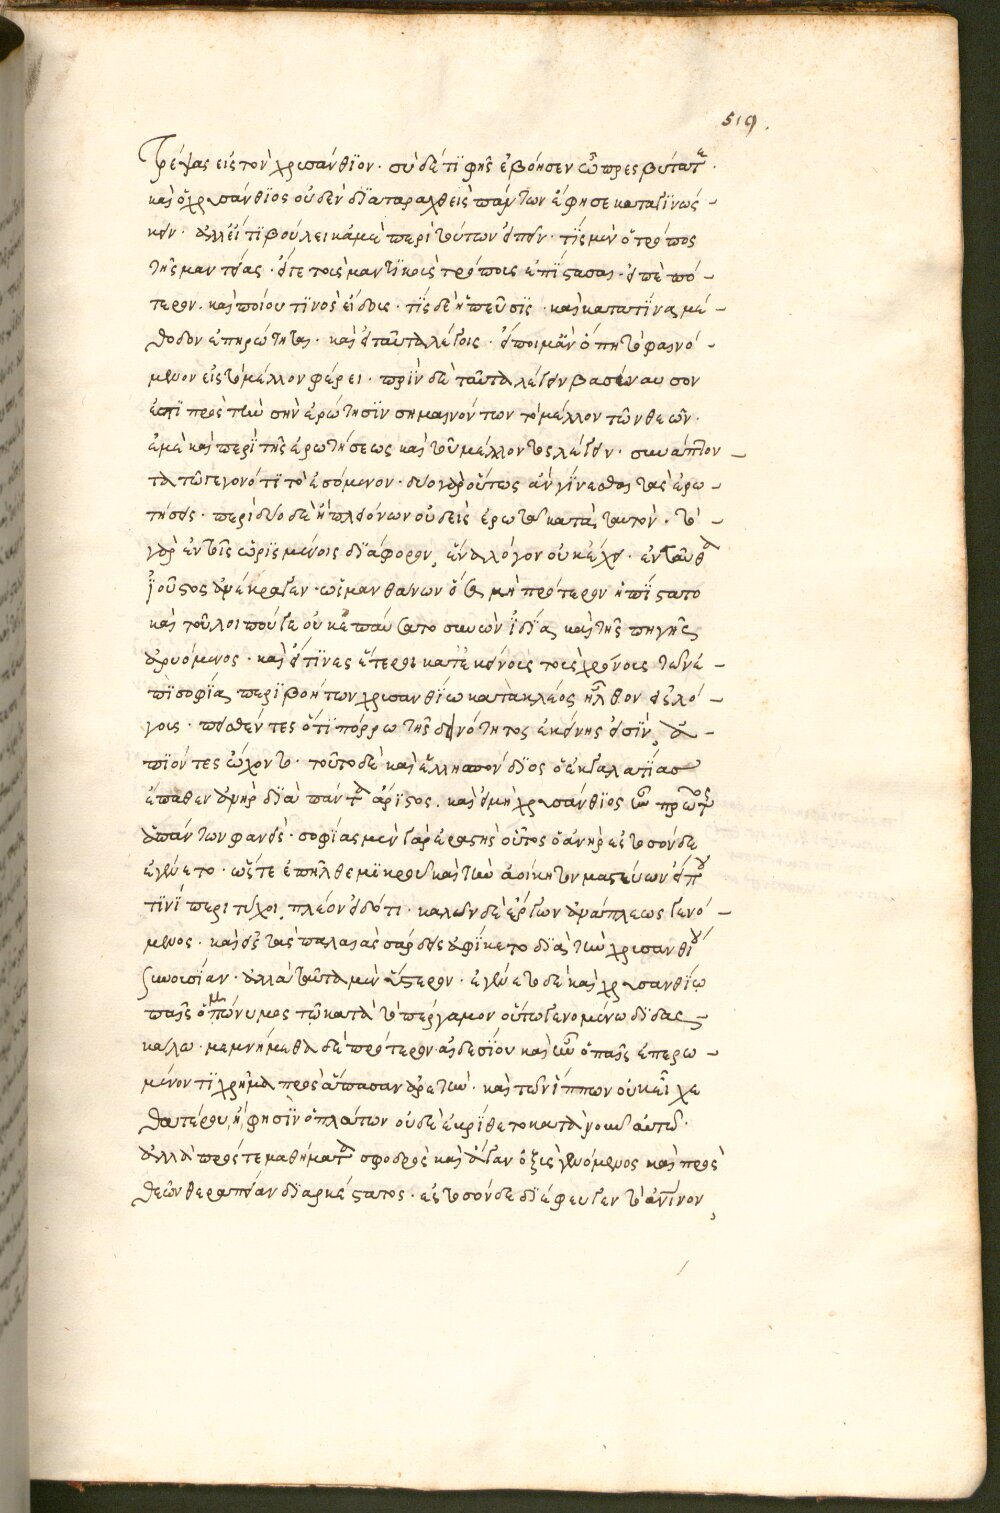 519.
τρέψας εἰς τὸν χρισάνθϊον· σὺ δὲ τί φῂς ἐβόησεν ὦ πρεσβύτατε·
καὶ ὁ χρυσάνθϊος οὐδὲν δϊαταραχθεὶς πάντων ἔφησε καταγϊνώς-
κειν· ἀλλ' εἴ τι βούλει κἀμὲ περὶ τούτων εἰπεῖν· τίς μὲν ὁ τρόπος
τῆς μαντείας· εἴτε τοῖς μαντϊκοῖς τρόποις ἐπίστασαι· εἶπε πό-
τερον. καὶ ποίου τϊνὸς εἴδους· τίς δὲ ἡ πεῦσις· καὶ κατὰ τίνα μέ-
θοδον ἐπηρώτηται. καὶ εἰ ταῦτα λέγοις· εἴποιμ' ἂν ὅπῃ τὸ φαινό-
μενον εἰς τὸ μέλλον φέρει· πρὶν δὲ ταῦτα λέγειν βασίναυσον
ἐστϊ πρὸς τὴν σὴν ἐρώτησϊν σημαινόντων τὸ μέλλον τῶν θεῶν·
ἐμὲ καὶ περὶ τῆς ἐρωτήσεως καὶ τοῦ μέλλοντος λέγειν· συνάπτον-
τα τῷ γεγονότϊ τὸ ἐσόμενον· δύο γὰρ οὕτως ἂν γίνεσθαι τὰς ἐρω-
τήσεις· περὶ δύο δὲ ἢ πλειόνων οὐδεὶς ἐρωτᾷ κατὰ ταυτόν· τὸ-
γὰρ ἐν τοῖς ὡρϊσμένοις δϊάφορον, ἕνα λόγον οὐκ ἔχει· ἐνταῦθα
ἰοῦστος ἀνέκραγεν· ὡς μανθάνων ὅσα μὴ πρότερον ἠπίστατο
καὶ τοῦ λοιποῦ γε οὐκ ἐπαύσατο συνὼν ἰδίᾳ καὶ τῆς πηγῆς
ἀρυόμενος· καὶ εἴ τϊνες ἕτεροι κατ' ἐκείνους τοὺς χρόνους τῶν ἐ-
πὶ σοφίᾳ περϊβοήτων χρισανθίῳ κατὰ κλέος ἦλθον εἰς λό-
γους· πεισθέντες ὅτϊ πόρρω τῆς δεινότητος ἐκείνης εἰσϊν, ἀ-
πϊόντες ᾤχοντο· τοῦτο δὲ καὶ ἑλλησπόνδϊος ὁ ἐκ γαλατίας
ἔπαθεν ἀνὴρ δϊὰ πάντα ἄριστος. καὶ εἰ μὴ χρυσάνθϊος ἦν πρῶτος
ἁπάντων φανείς· σοφίας μὲν γὰρ ἐραστὴς οὗτος ὁ ἀνὴρ ἐς τοσόνδε
ἐγένετο· ὥστε ἐπῆλθε μϊκροῦ καὶ τὴν ἀοίκητον μαστεύων εἴ που
τϊνὶ περιτύχοι πλέον εἰδότι· καλῶν δὲ ἔργων ἀνάπλεως γενό-
μενος· καὶ εἰς τὰς παλαιὰς σάρδεις ἀφίκετο δϊὰ τὴν χρισανθίου
συνουσίαν· ἀλλὰ ταῦτα μὲν ὕστερον· ἐγένετο δὲ καὶ χρυσανθίῳ
παῖς ὁμώνυμος τῷ κατὰ τὸ πέργαμον οὕτω γενομένῳ δϊδας-
κάλῳ· μεμνήμεθα δὲ πρότερον αἰδεσίου καὶ ἦν ὁ παῖς ἐπερω-
μένον τϊ χρῆμα πρὸς ἅπασαν ἀρετήν· καὶ τῶν ἵππων οὐκ εἶχε
θατέρου, ᾗ φησϊν ὁ πλάτων οὐδὲ ἐκρίθετο κατὰ νοῦν αὐτῷ·
ἀλλὰ πρός τε μαθήματα σφοδρὸς καὶ ἄγαν ὀξὺς γενόμενος καὶ πρὸς
θεῶν θεραπείαν δϊαρκέστατος· ἐς τοσόνδε δϊέφευγεν τὸ ἀνΐνον,